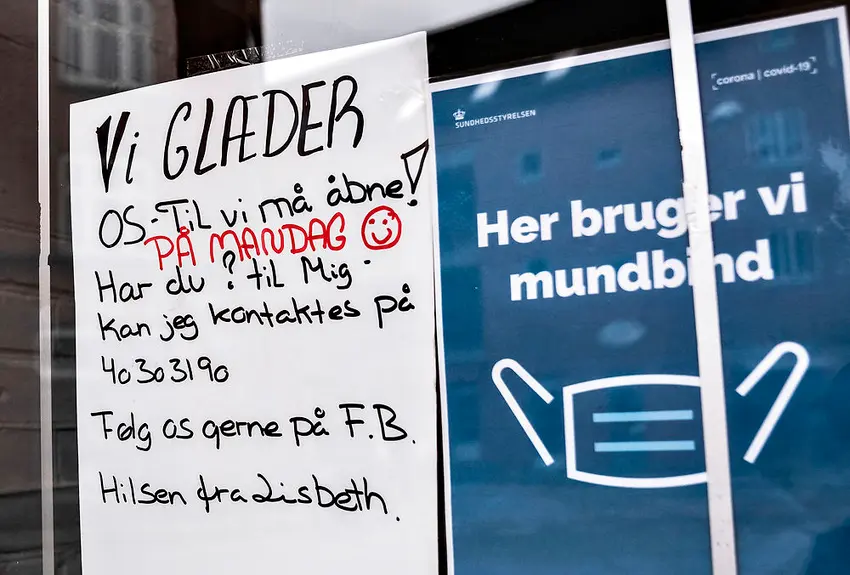 Vi GLÆDER
OS - Til vi må åbne!
PÅ MANDAG
Har du ? til Mig -
kan jeg kontaktes på
40303190
Følg os gerne på F.B.
Hilsen fra Lisbeth.
SUNDHEDSSTYRELSEN
corona | covid-19
Her bruger vi
mundbind